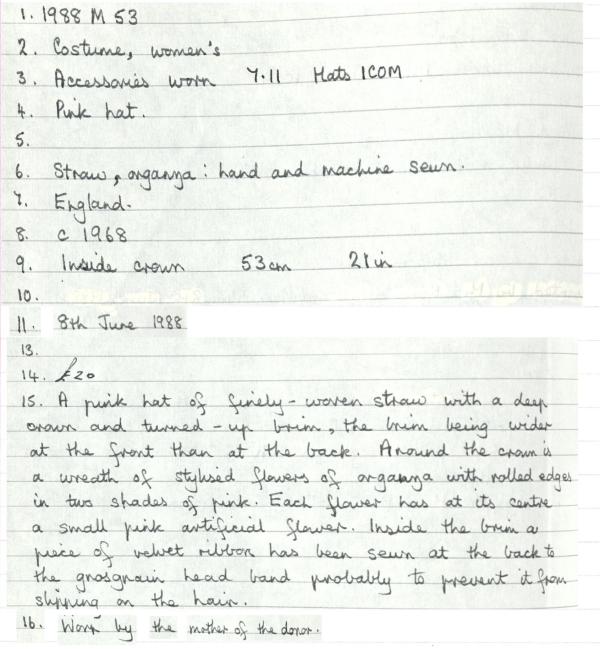 1. 1988 M 53
2. Costume, women's
3. Accessories worn 7.11 Hats ICOM
4. Pink hat.
5.
6. Straw, organza : hand and machine sewn.
7. England.
8. c 1968
9. Inside crown 53cm 21in
10.
11. 8th June 1988
13.
14. £20
15. A pink hat of finely-woven straw with a deep
crown and turned-up brim, the brim being wider
at the front than at the back. Around the crown is
a wreath of stylised flowers of organza with rolled edges
in two shades of pink. Each flower has at its centre
a small pink artificial flower. Inside the brim a
piece of velvet ribbon has been sewn at the back to
the grosgrain head band probably to prevent it from
slipping on the hair.
16. Worn by the mother of the donor.